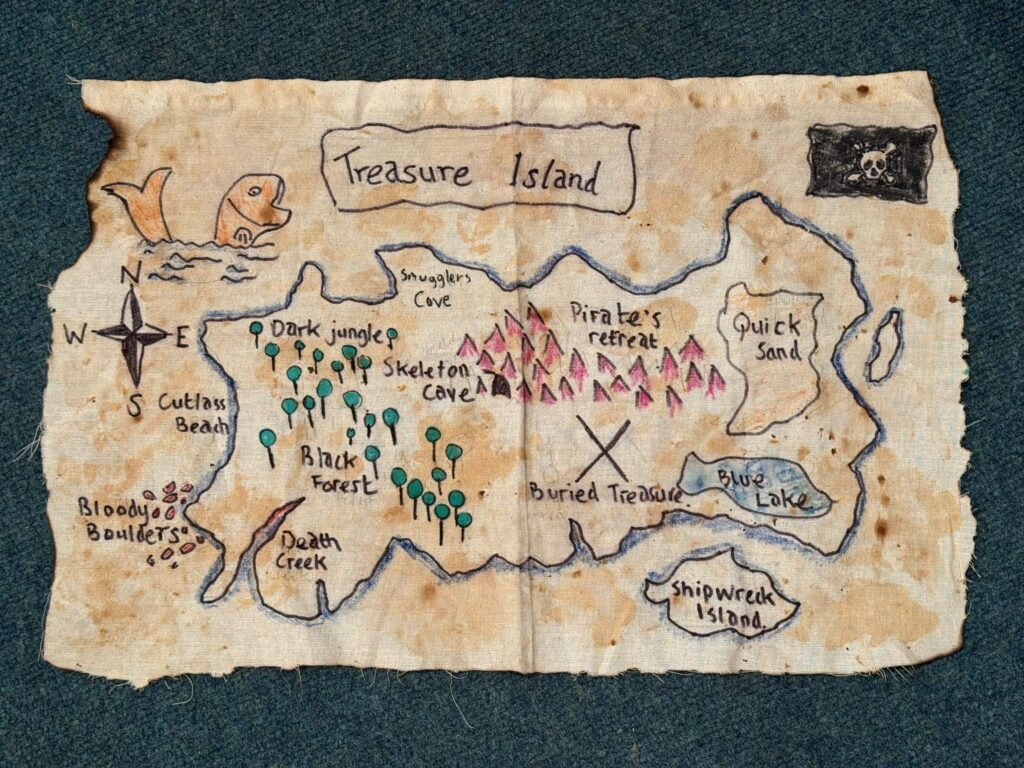 Treasure Island
N
W E
S
Smugglers
Cove
Dark jungle
Pirate's
retreat
Quick
Sand
Skeleton
Cave
Cutlass
Beach
Black
Forest
Buried Treasure
Blue
Lake
Bloody
Boulders
Death
Creek
Shipwreck
Island.